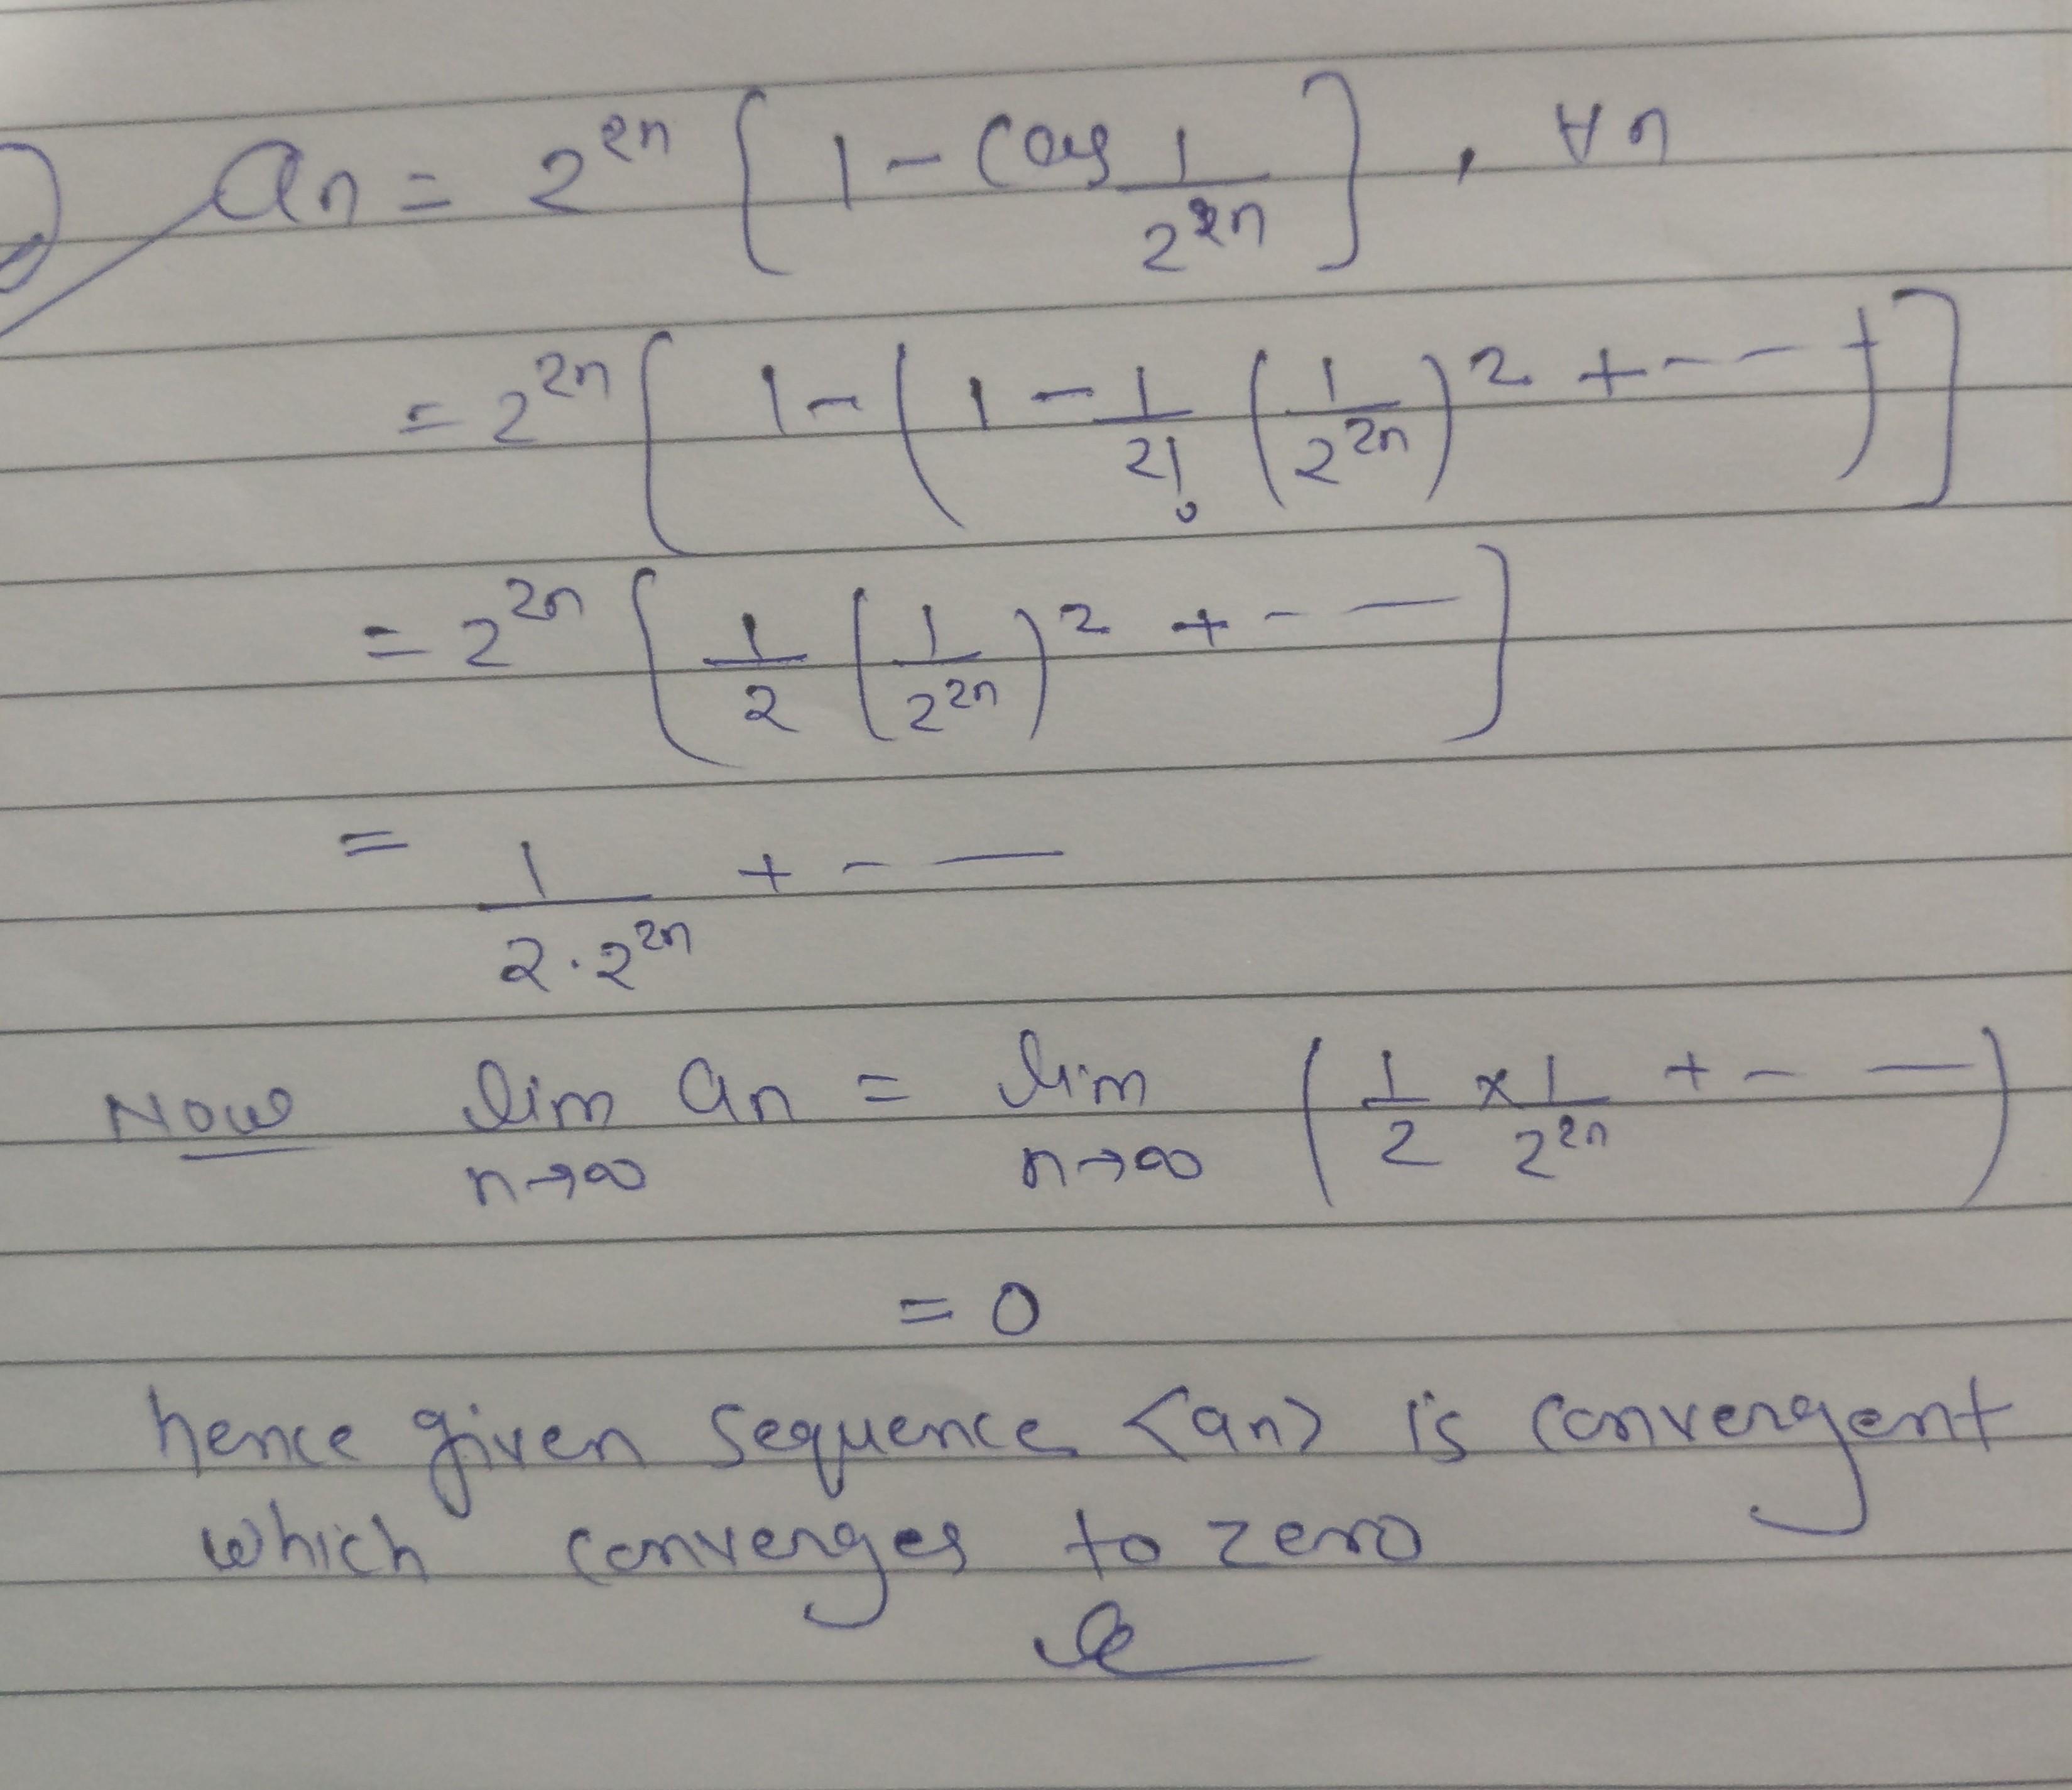 an = 2^{2n} [ 1 - Cos 1/2^{2n} ] , ∀ n
= 2^{2n} [ 1 - ( 1 - 1/2! ( 1/2^{2n} )^2 + - - - ) ]
= 2^{2n} [ 1/2 ( 1/2^{2n} )^2 + - - ]
= 1/2·2^{2n} + - -
Now lim n→∞ an = lim n→∞ ( 1/2 × 1/2^{2n} + - - )
= 0
hence given sequence <an> is convergent
which converges to zero